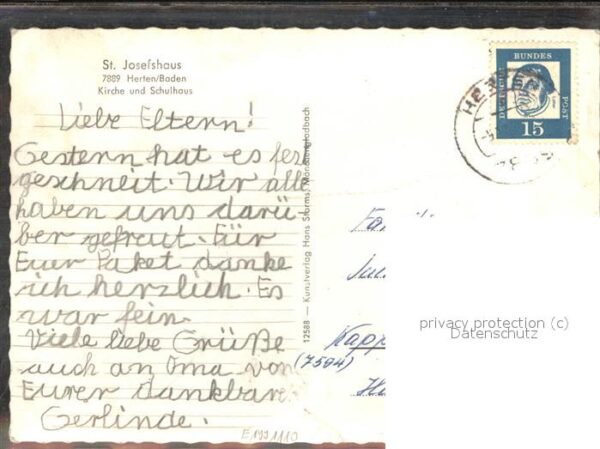 St. Josefshaus
7889 Herten/Baden
Kirche und Schulhaus
Liebe Eltern!
Gestern hat es fest
geschneit. Wir alle
haben uns darü-
ber gefreut. Für
Euer Paket danke
ich herzlich. Es
war fein.
Viele liebe Grüße
auch an Oma von
Eurer dankbare
Gerlinde.
E1991110
12588 — Kunstverlag Hans Storms, Mönchengladbach
DEUTSCHE
BUNDES
POST
15
Kapp
(7594)
privacy protection (c)
Datenschutz